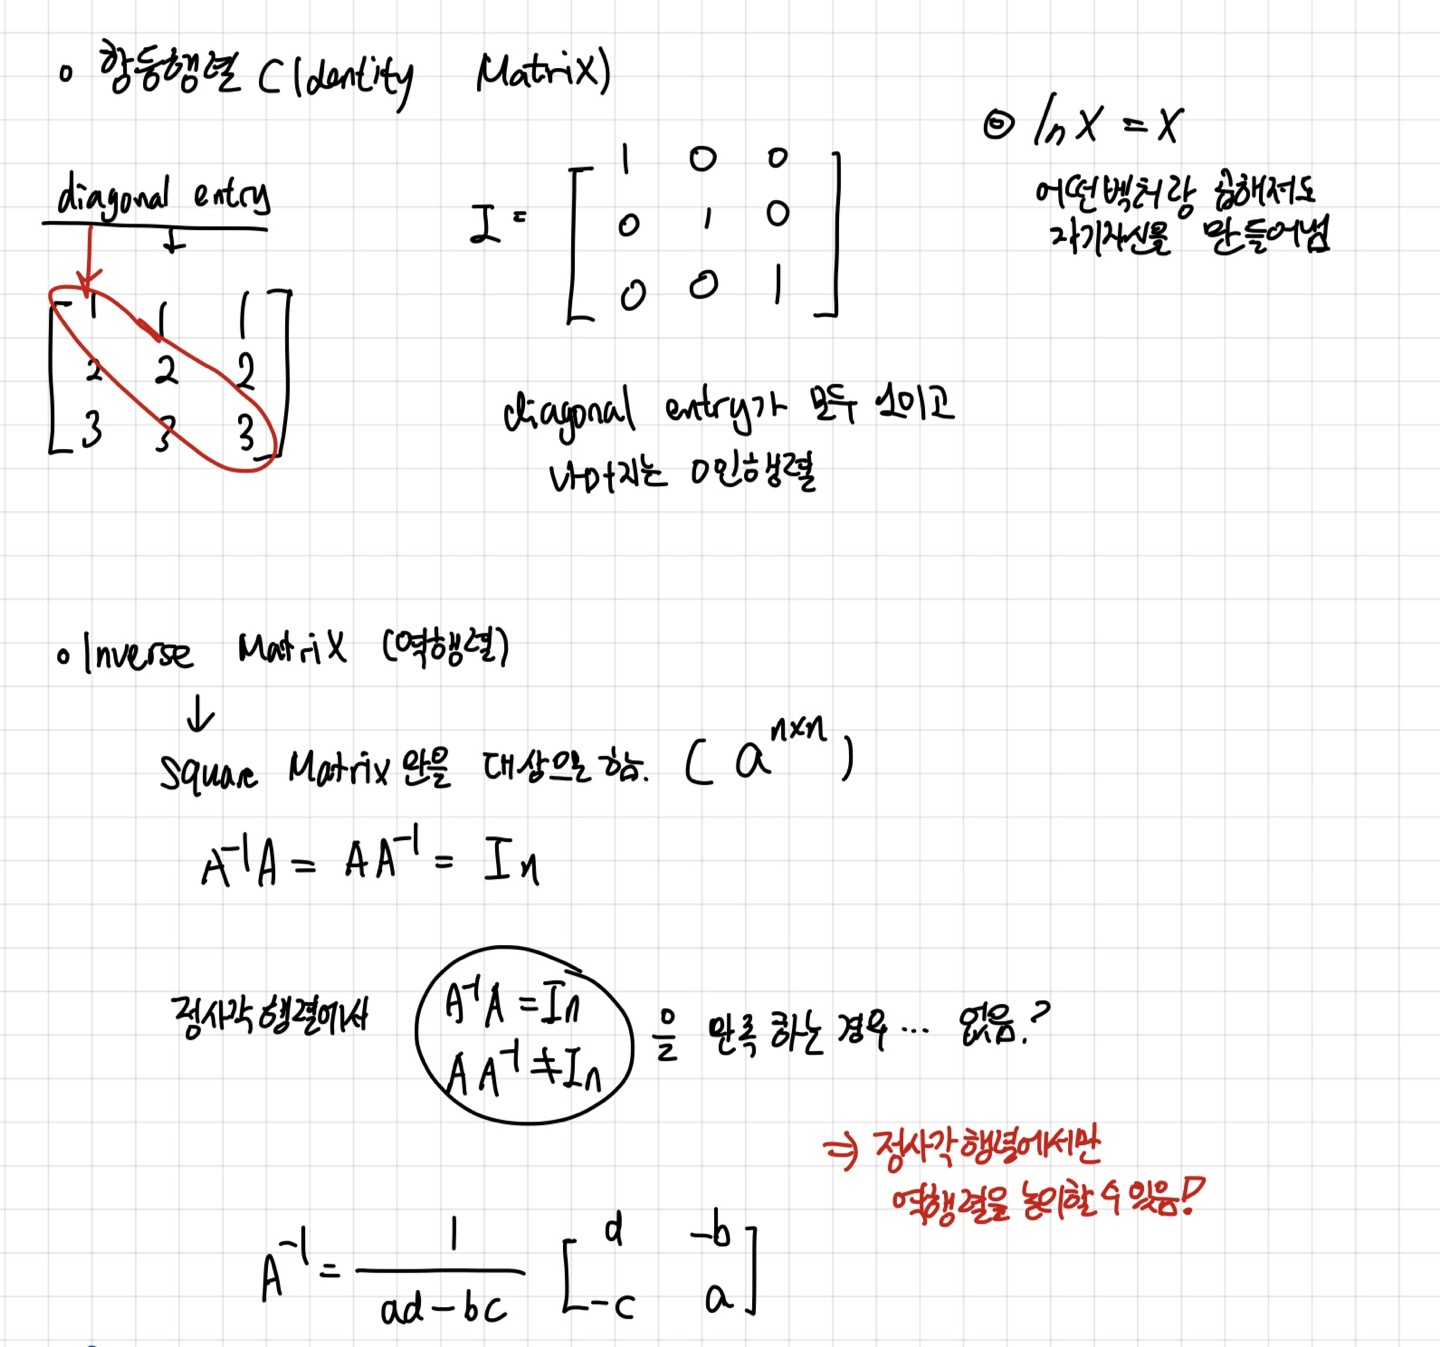 o 항등행렬 (Identity Matrix)
diagonal entry
1 1 1
2 2 2
3 3 3
I =
1 0 0
0 1 0
0 0 1
diagonal entry가 모두 1이고
나머지는 0인행렬
◎ In X = X
어떤벡터랑 곱해져도
자기자신을 만들어냄
o Inverse Matrix (역행렬)
↓
Square Matrix 만을 대상으로 함. ( a^{n×n} )
A⁻¹A = AA⁻¹ = In
정사각행렬에서
A⁻¹A = In
AA⁻¹ ≠ In
을 만족하는 경우... 없음?
⇒ 정사각행렬에서만
역행렬을 논의할 수 있음!
A⁻¹ = 1 / ad-bc [ d -b
-c a ]